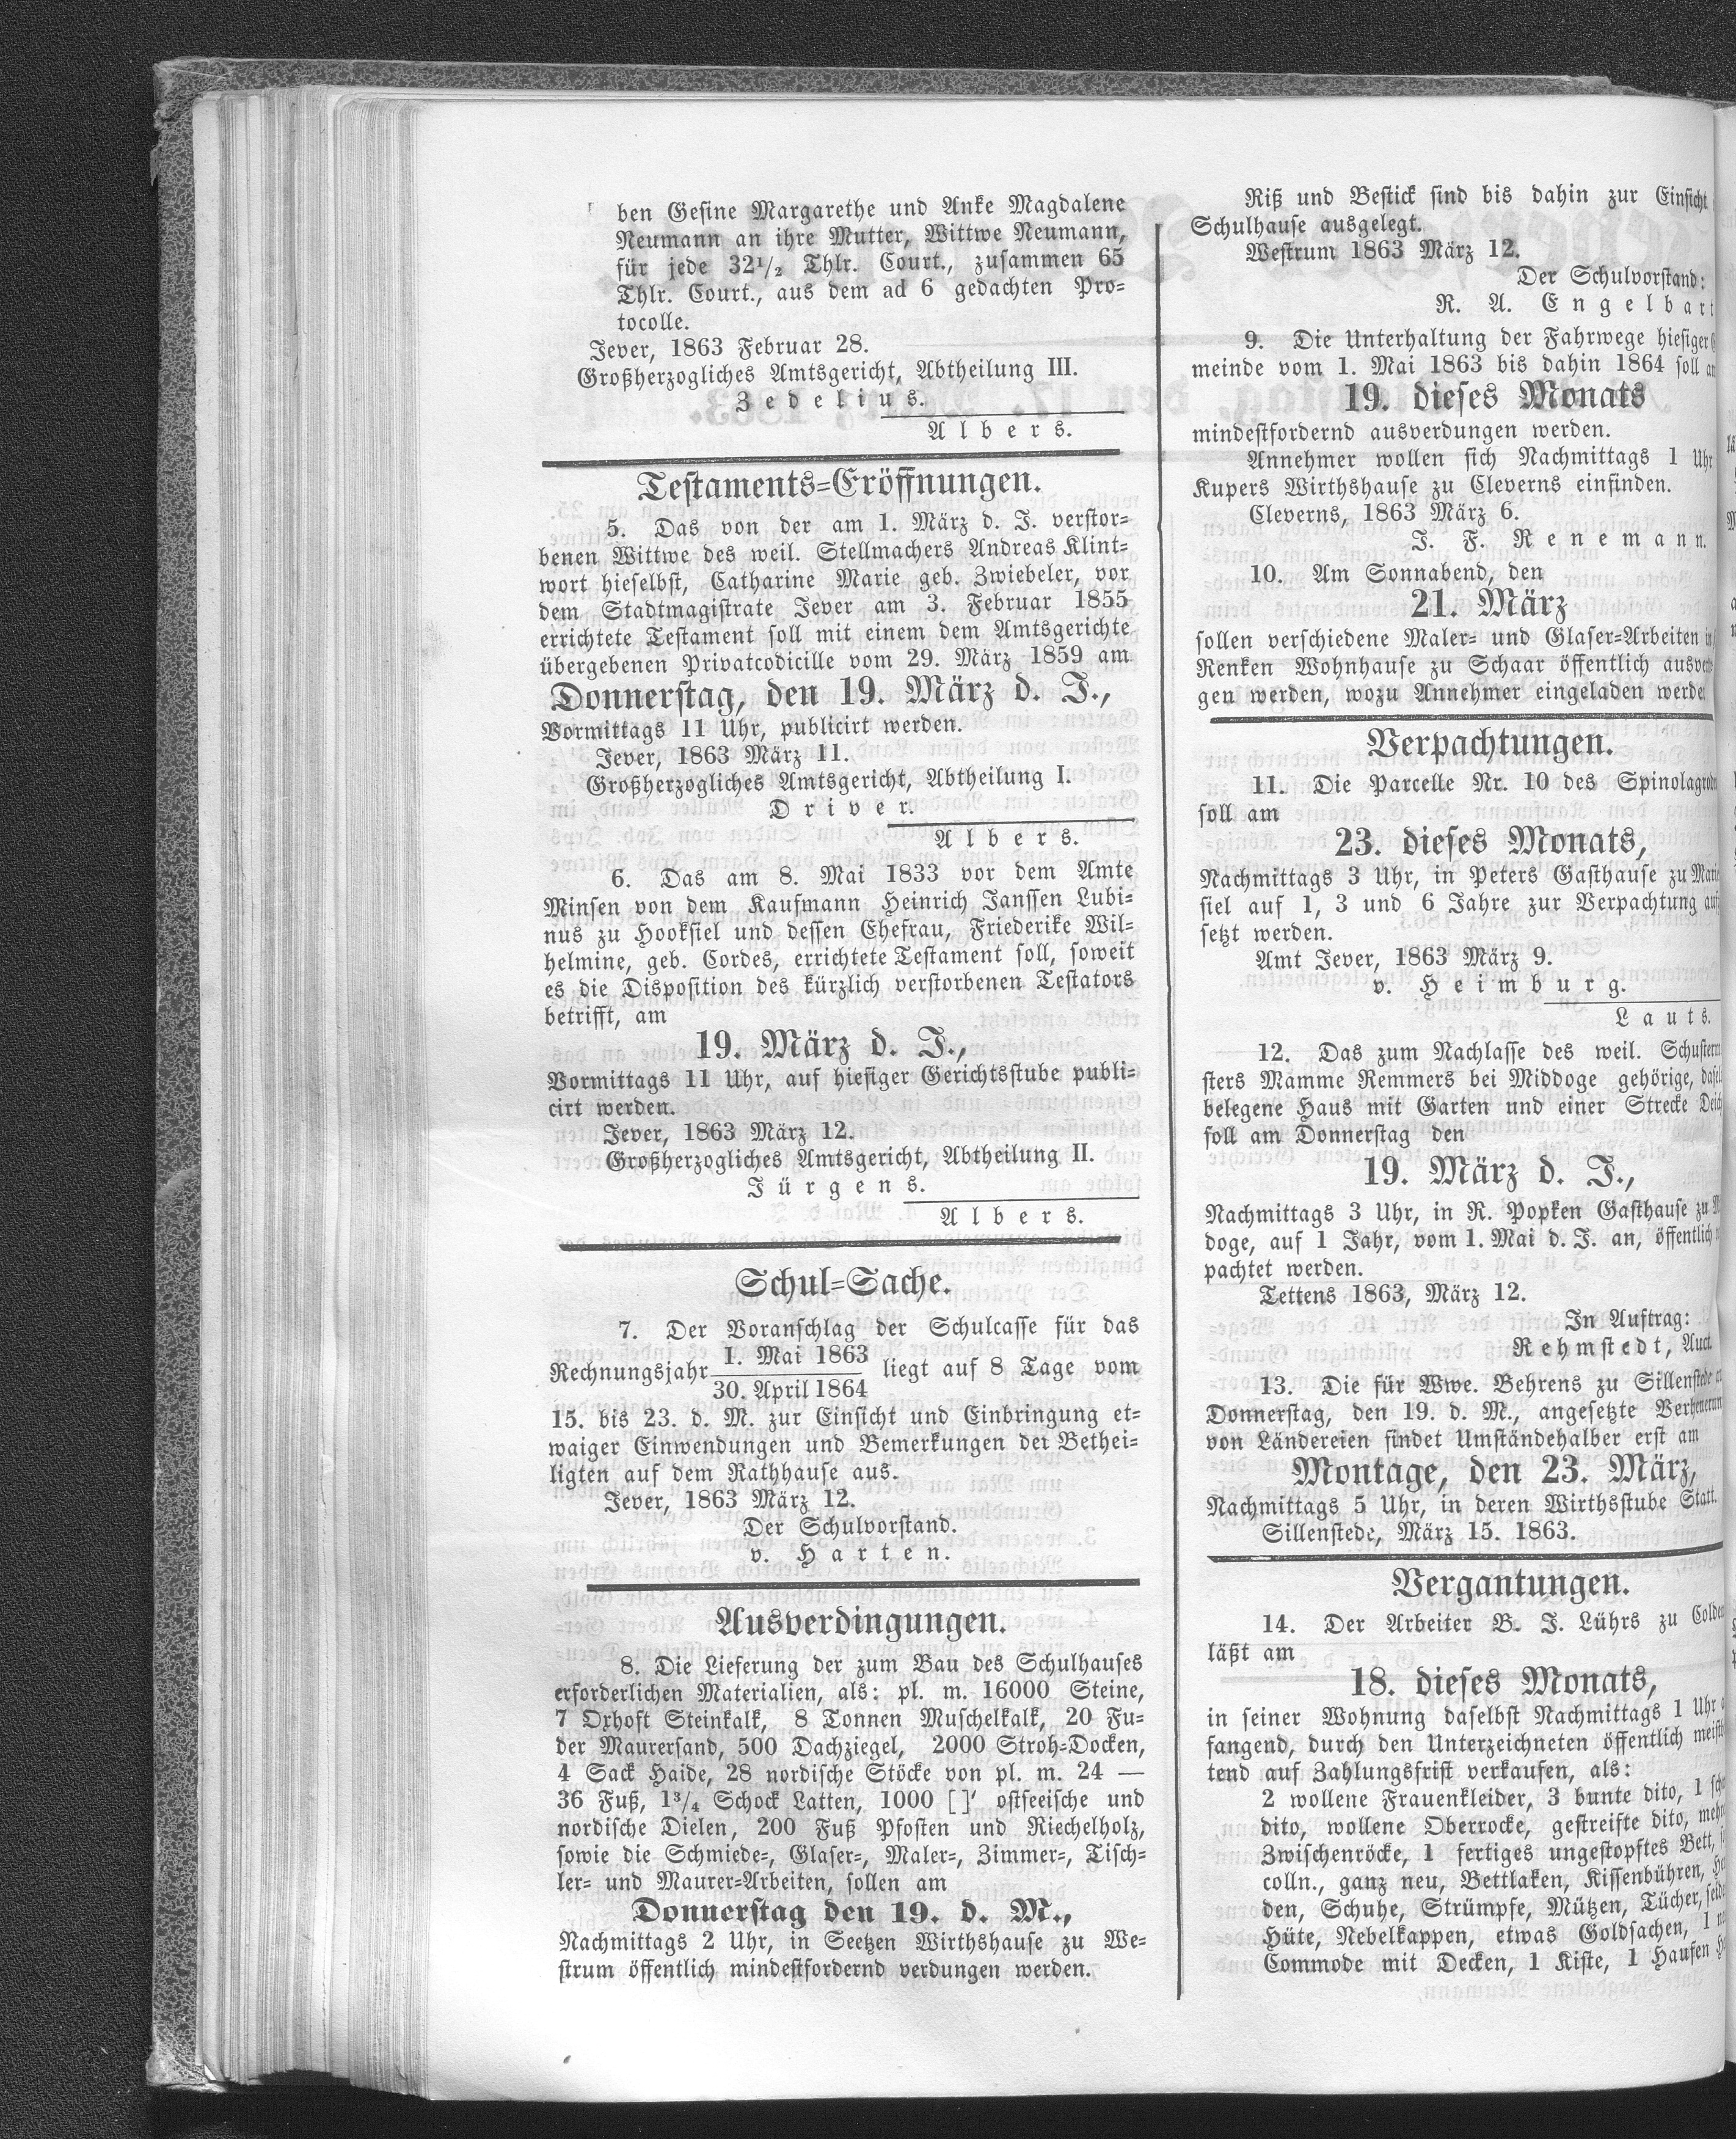 ben Gesine Margarethe und Anke Magdalene
Neumann an ihre Mutter, Wittwe Neumann,
für jede 32¹/₂ Thlr. Court., zusammen 65
Thlr. Court., aus dem ad 6 gedachten Pro-
tocolle.
Jever, 1863 Februar 28.
Großherzogliches Amtsgericht, Abtheilung III.
Zedelius.
Albers.
Testaments-Eröffnungen.
5. Das von der am 1. März d. J. verstor-
benen Wittwe des weil. Stellmachers Andreas Klint-
wort hieselbst, Catharine Marie geb. Zwiebeler, vor
dem Stadtmagistrate Jever am 3. Februar 1855
errichtete Testament soll mit einem dem Amtsgerichte
übergebenen Privatcodicille vom 29. März 1859 am
Donnerstag, den 19. März d. J.,
Vormittags 11 Uhr, publicirt werden.
Jever, 1863 März 11.
Großherzogliches Amtsgericht, Abtheilung I.
Driver.
Albers.
6. Das am 8. Mai 1833 vor dem Amte
Minsen von dem Kaufmann Heinrich Janssen Lubi-
nus zu Hooksiel und dessen Ehefrau, Friederike Wil-
helmine, geb. Cordes, errichtete Testament soll, soweit
es die Disposition des kürzlich verstorbenen Testators
betrifft, am
19. März d. J.,
Vormittags 11 Uhr, auf hiesiger Gerichtsstube publi-
cirt werden.
Jever, 1863 März 12.
Großherzogliches Amtsgericht, Abtheilung II.
Jürgens.
Albers.
Schul-Sache.
7. Der Voranschlag der Schulcasse für das
Rechnungsjahr 1. Mai 1863 / 30. April 1864 liegt auf 8 Tage vom
15. bis 23. d. M. zur Einsicht und Einbringung et-
waiger Einwendungen und Bemerkungen der Bethei-
ligten auf dem Rathhause aus.
Jever, 1863 März 12.
Der Schulvorstand.
v. Harten.
Ausverdingungen.
8. Die Lieferung der zum Bau des Schulhauses
erforderlichen Materialien, als: pl. m. 16000 Steine,
7 Oxhoft Steinkalk, 8 Tonnen Muschelkalk, 20 Fu-
der Maurersand, 500 Dachziegel, 2000 Stroh-Docken,
4 Sack Haide, 28 nordische Stöcke von pl. m. 24 —
36 Fuß, 1³/₄ Schock Latten, 1000 []' ostseeische und
nordische Dielen, 200 Fuß Pfosten und Riechelholz,
sowie die Schmiede-, Glaser-, Maler-, Zimmer-, Tisch-
ler- und Maurer-Arbeiten, sollen am
Donnerstag den 19. d. M.,
Nachmittags 2 Uhr, in Seetzen Wirthshause zu We-
strum öffentlich mindestfordernd verdungen werden.
Riß und Bestick sind bis dahin zur Einsicht
Schulhause ausgelegt.
Westrum 1863 März 12.
Der Schulvorstand:
R. A. Engelbart
9. Die Unterhaltung der Fahrwege hiesiger
meinde vom 1. Mai 1863 bis dahin 1864 soll
19. dieses Monats
mindestfordernd ausverdungen werden.
Annehmer wollen sich Nachmittags 1 Uhr
Kupers Wirthshause zu Cleverns einfinden.
Cleverns, 1863 März 6.
J. F. Renemann.
10. Am Sonnabend, den
21. März
sollen verschiedene Maler- und Glaser-Arbeiten
Renken Wohnhause zu Schaar öffentlich
gen werden, wozu Annehmer eingeladen
Verpachtungen.
11. Die Parcelle Nr. 10 des
soll am
23. dieses Monats,
Nachmittags 3 Uhr, in Peters Gasthause zu
siel auf 1, 3 und 6 Jahre zur Verpachtung
setzt werden.
Amt Jever, 1863 März 9.
v. Heimburg.
Lauts.
12. Das zum Nachlasse des weil.
sters Mamme Remmers bei Middoge gehörige,
belegene Haus mit Garten und einer Strecke
soll am Donnerstag den
19. März d. J.,
Nachmittags 3 Uhr, in R. Popken Gasthause zu
doge, auf 1 Jahr, vom 1. Mai d. J. an, öffentlich
pachtet werden.
Tettens 1863, März 12.
In Auftrag:
Rehmstedt, Auct.
13. Die für Wwe. Behrens zu Sillenstede
Donnerstag, den 19. d. M., angesetzte
von Ländereien findet Umständehalber erst am
Montage, den 23. März,
Nachmittags 5 Uhr, in deren Wirthsstube Statt.
Sillenstede, März 15. 1863.
Vergantungen.
14. Der Arbeiter B. J. Lührs zu
läßt am
18. dieses Monats,
in seiner Wohnung daselbst Nachmittags 1 Uhr
fangend, durch den Unterzeichneten öffentlich
tend auf Zahlungsfrist verkaufen, als:
2 wollene Frauenkleider, 3 bunte dito, 1
dito, wollene Oberrocke, gestreifte dito,
Zwischenröcke, 1 fertiges ungestopftes Bett,
colln., ganz neu, Bettlaken, Kissenbühren,
den, Schuhe, Strümpfe, Mützen, Tücher,
Hüte, Nebelkappen, etwas Goldsachen, 1
Commode mit Decken, 1 Kiste, 1 Haufen